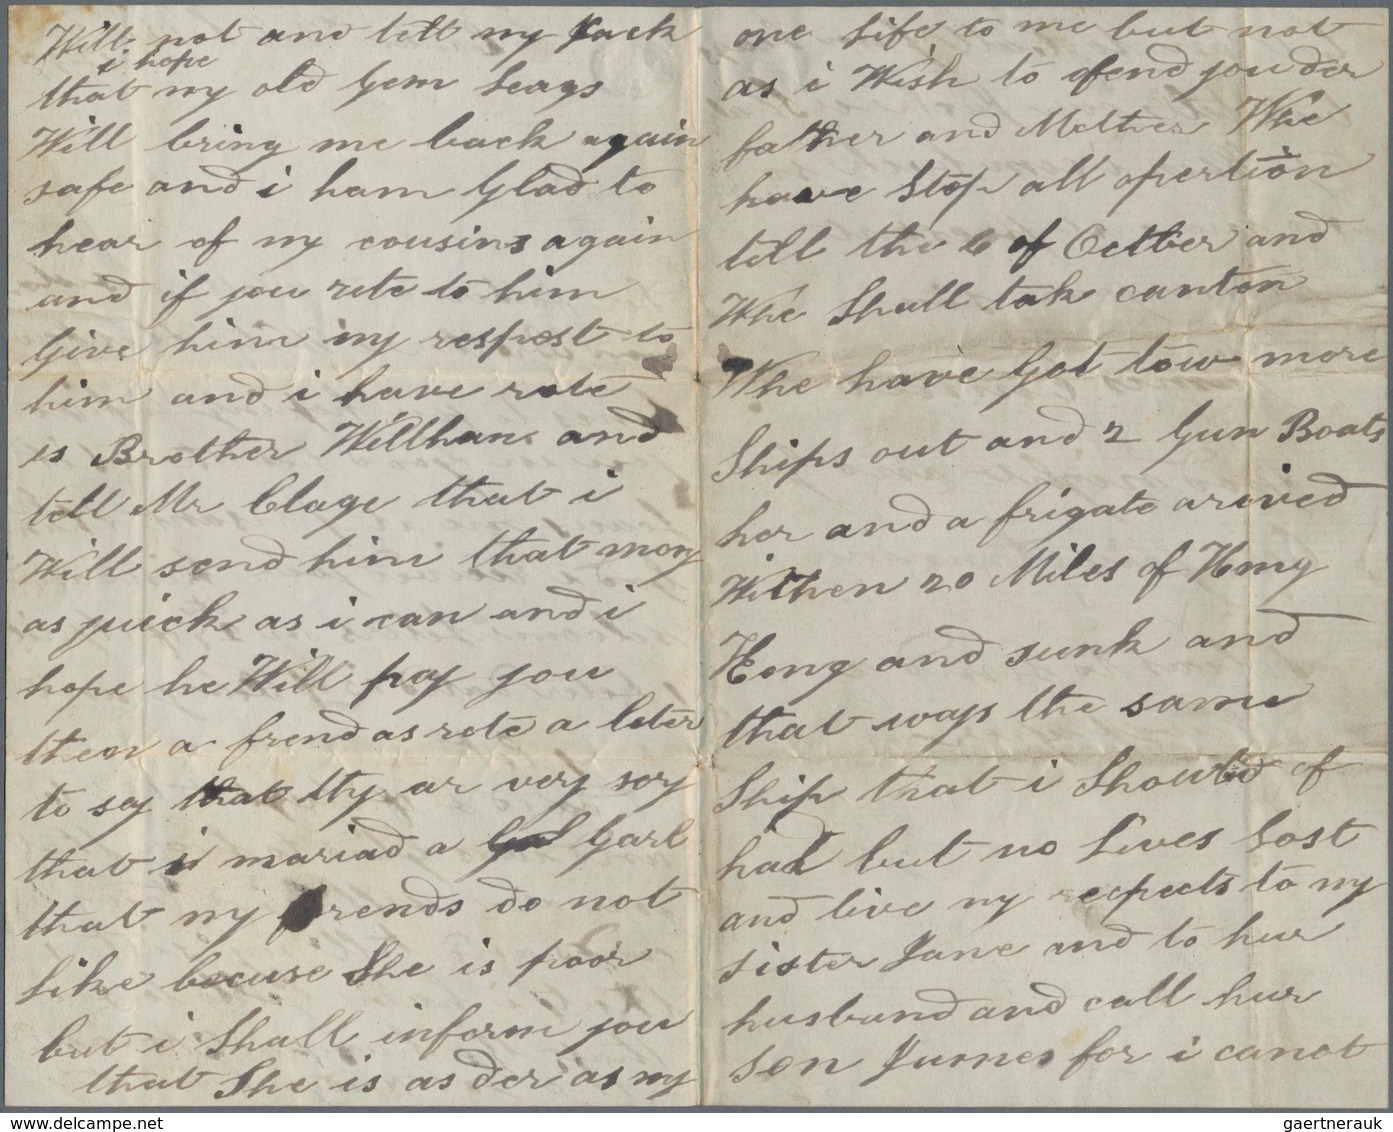 Will not and tell my Jack
i hope
that my old Gem Leags
Will bring me back again
safe and i ham Glad to
hear of my cousins again
and if you rite to him
Give him my respest to
him and i have rote
is Brother Willham and
tell Mr Clage that i
Will send him that mony
as quick as i can and i
hope he Will pay you
then a frend as rete a leter
to say that thy ar very sory
that i mariad a Garl
that my frends do not
Like becuse She is poor
but i Shall inform you
that She is as der as my
one Life to me but not
as i Wish to ofend you der
father and Mother Whe
have Stop all opertion
till the 6 of Octber and
Whe Shall tak canton
Whe have Got tow more
Ships out and 2 Gun Boats
her and a frigate arived
Withen 20 Miles of Hong
Hong and sunk and
that ways the same
Ship that i Should of
had but no Lives Lost
and Give my respects to my
sister Jane and to hur
husband and call hur
son James for i canot
www.delcampe.net
gaertnerauk